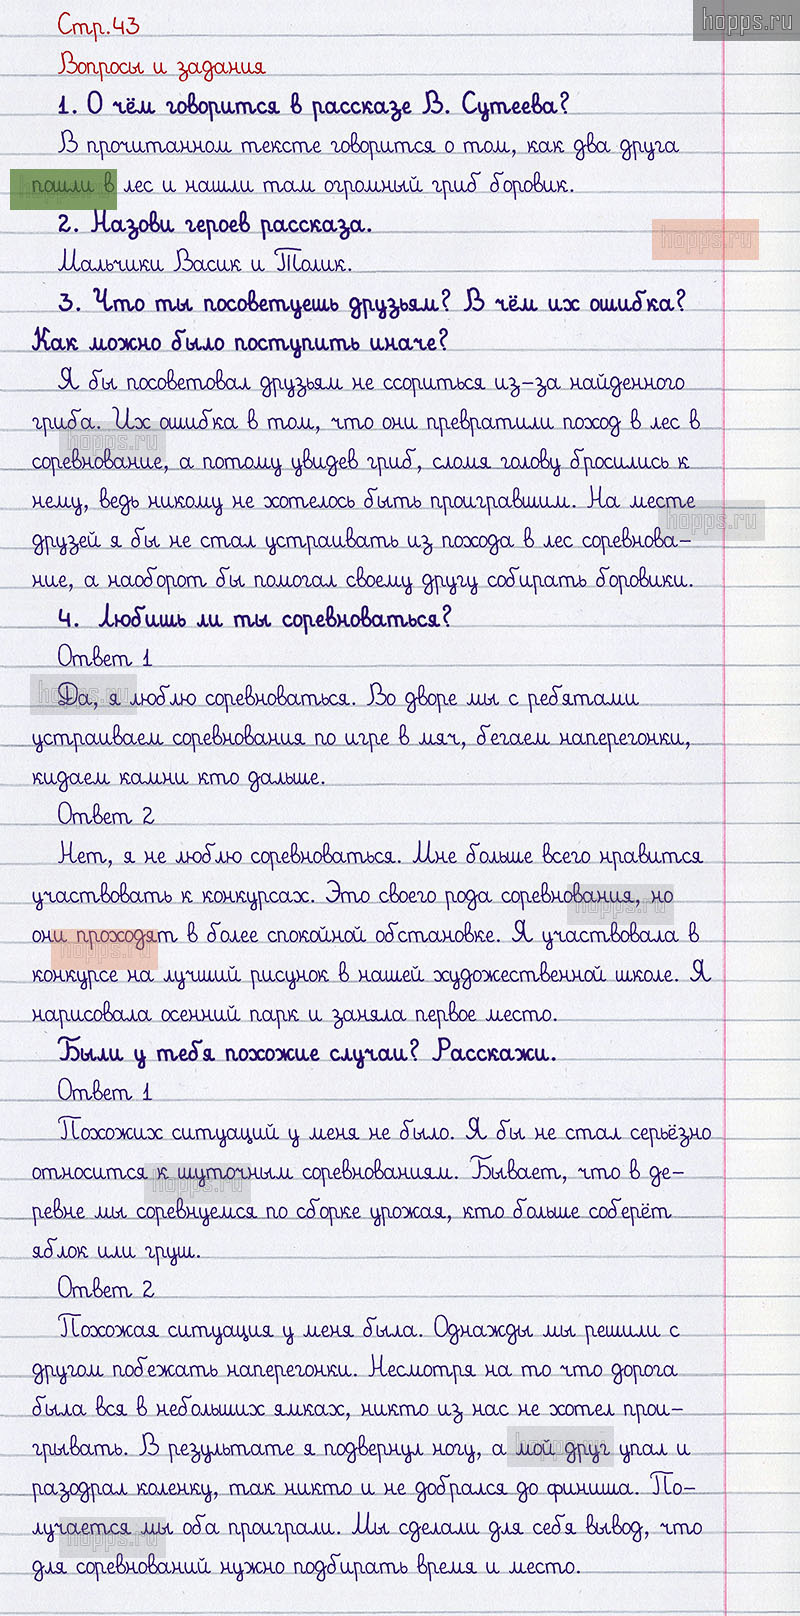 hopps.ru
Стр.43
Вопросы и задания
1. О чём говорится в рассказе В. Сутеева?
В прочитанном тексте говорится о том, как два друга
пошли в лес и нашли там огромный гриб боровик.
2. Назови героев рассказа.
hopps.ru
Мальчики Васик и Толик.
3. Что ты посоветуешь друзьям? В чём их ошибка?
Как можно было поступить иначе?
Я бы посоветовал друзьям не ссориться из-за найденного
гриба. Их ошибка в том, что они превратили поход в лес в
hopps.ru
соревнование, а потому увидев гриб, сломя голову бросились к
нему, ведь никому не хотелось быть проигравшим. На месте
hopps.ru
друзей я бы не стал устраивать из похода в лес соревнова-
ние, а наоборот бы помогал своему другу собирать боровики.
4. Любишь ли ты соревноваться?
Ответ 1
hopps.ru
Да, я люблю соревноваться. Во дворе мы с ребятами
устраиваем соревнования по игре в мяч, бегаем наперегонки,
кидаем камни кто дальше.
Ответ 2
Нет, я не люблю соревноваться. Мне больше всего нравится
участвовать к конкурсах. Это своего рода соревнования, но
hopps.ru
они проходят в более спокойной обстановке. Я участвовала в
hopps.ru
конкурсе на лучший рисунок в нашей художественной школе. Я
нарисовала осенний парк и заняла первое место.
Были у тебя похожие случаи? Расскажи.
Ответ 1
Похожих ситуаций у меня не было. Я бы не стал серьёзно
относится к шуточным соревнованиям. Бывает, что в де-
hopps.ru
ревне мы соревнуемся по сборке урожая, кто больше соберёт
яблок или груш.
Ответ 2
Похожая ситуация у меня была. Однажды мы решили с
другом побежать наперегонки. Несмотря на то что дорога
была вся в небольших ямках, никто из нас не хотел прои-
грывать. В результате я подвернул ногу, а мой друг упал и
hopps.ru
разодрал коленку, так никто и не добрался до финиша. По-
лучается мы оба проиграли. Мы сделали для себя вывод, что
hopps.ru
для соревнований нужно подбирать время и место.